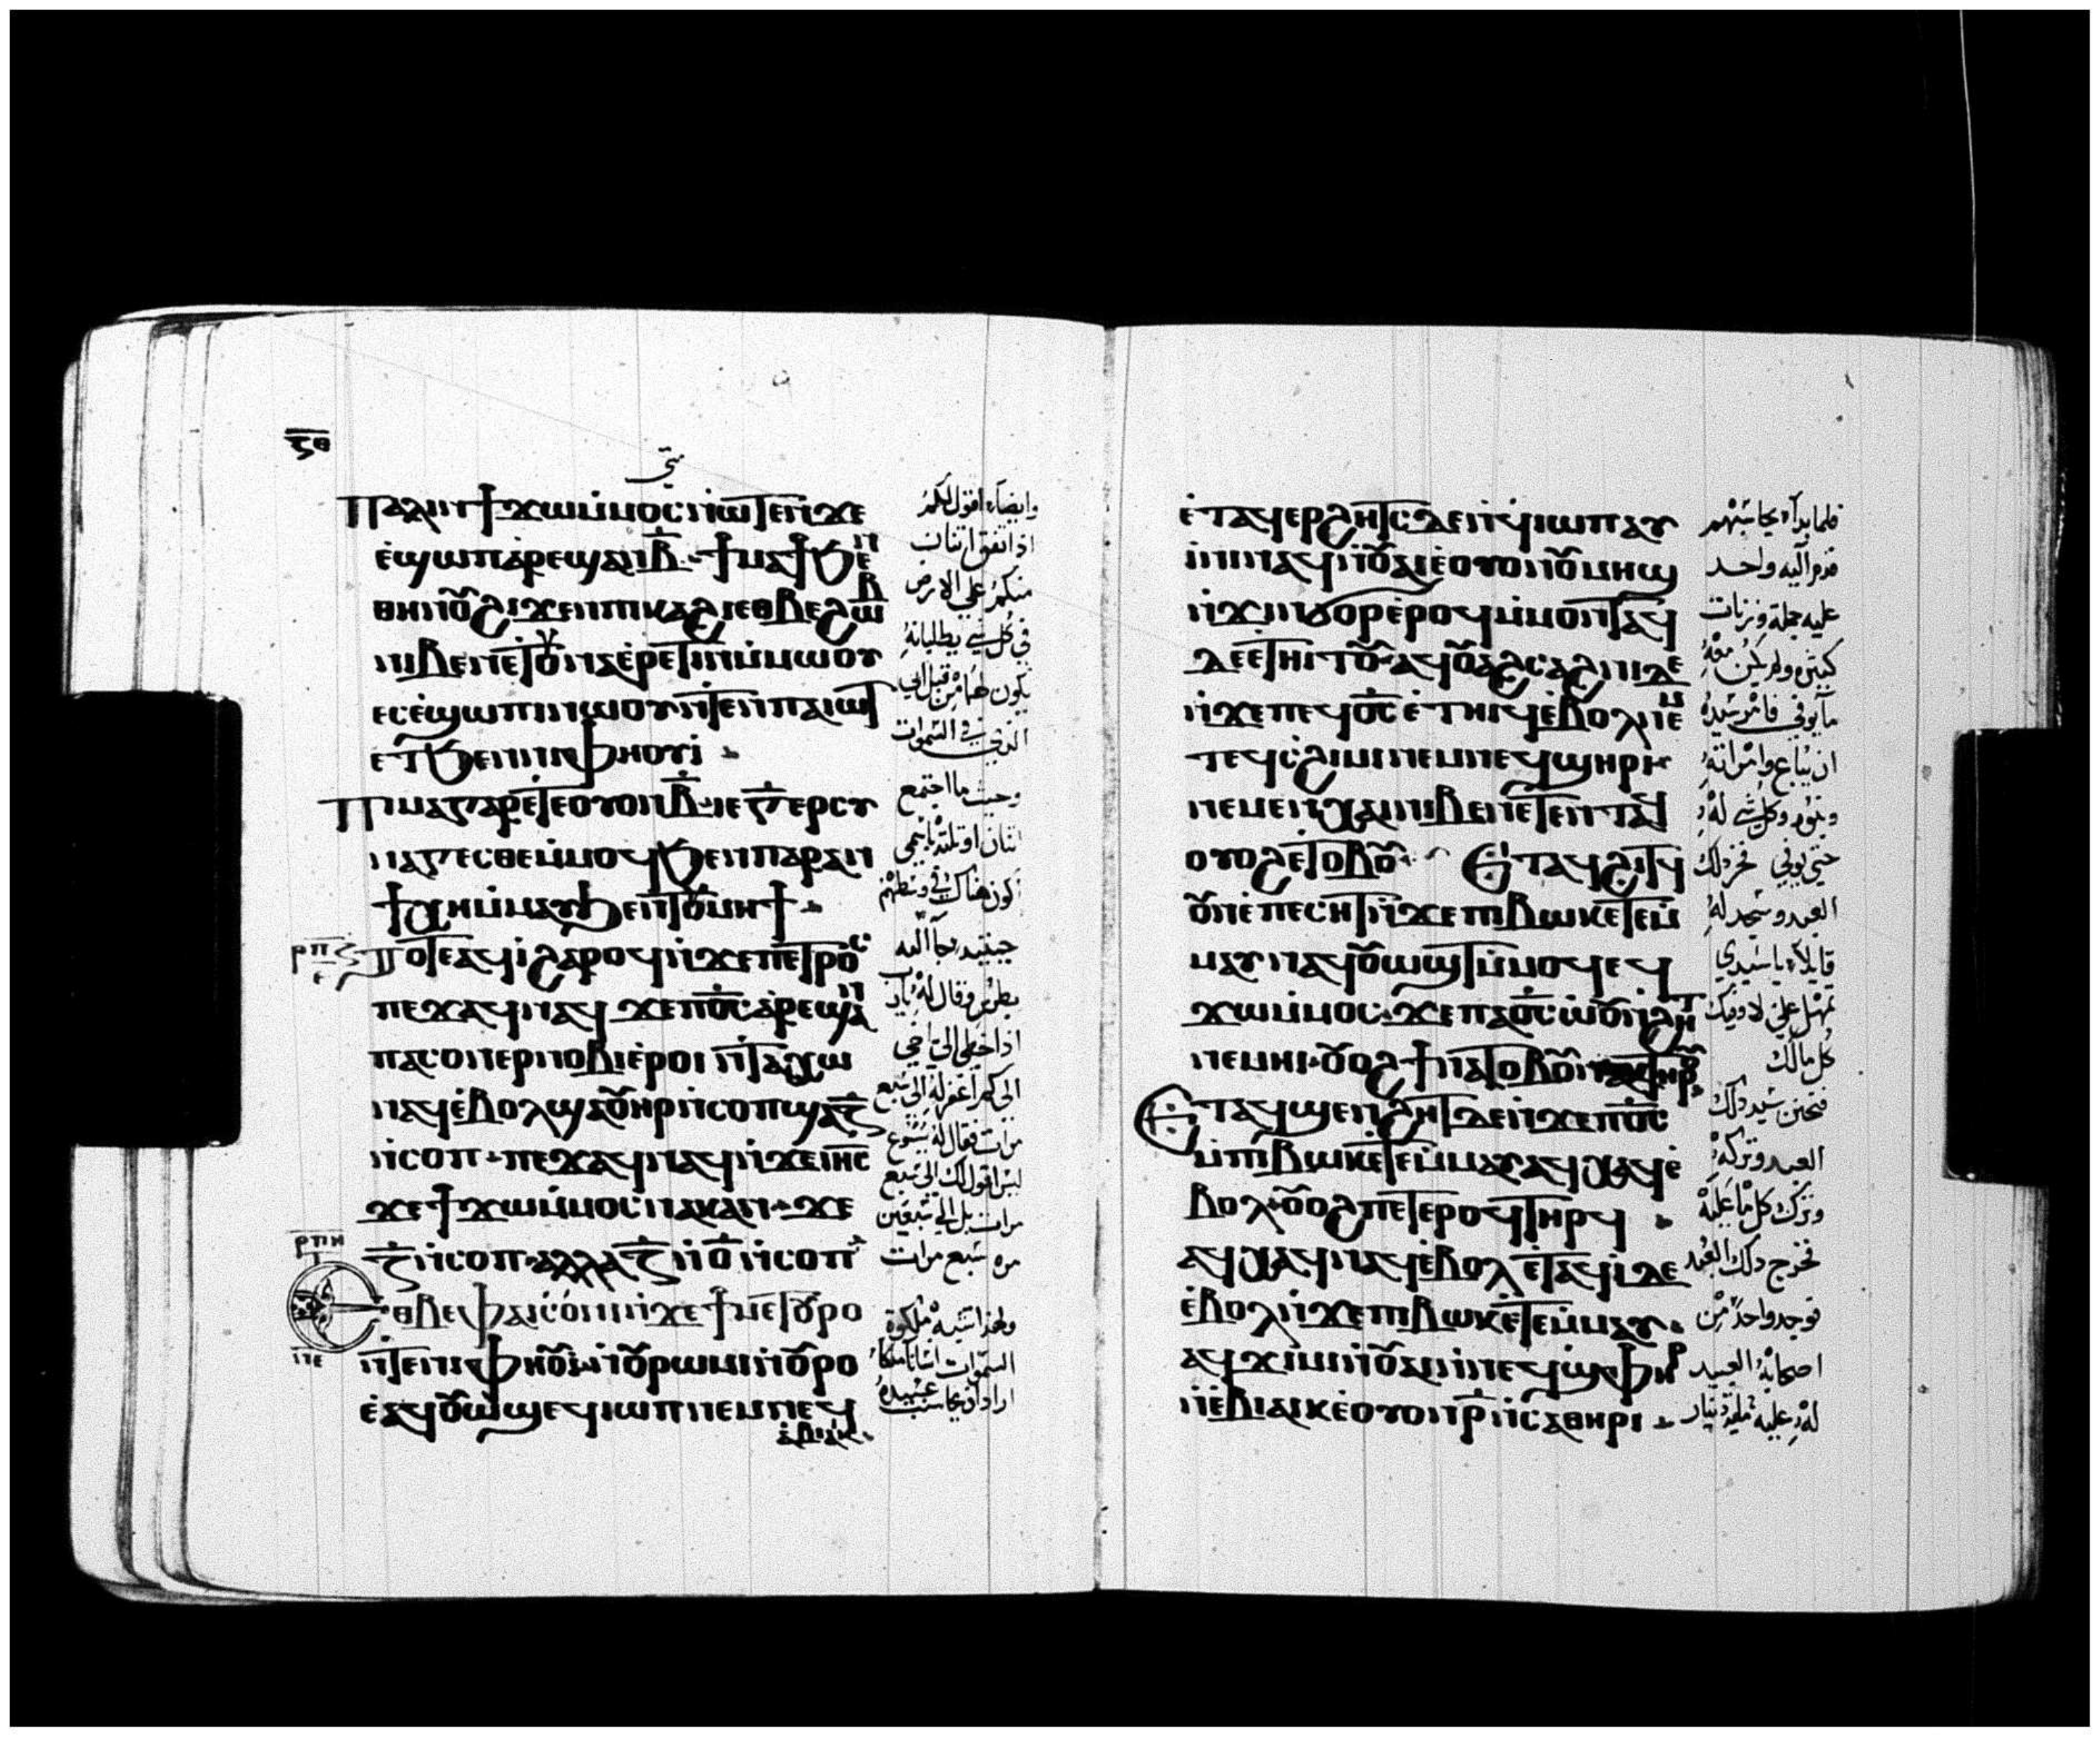 ⲝⲑ
متي
ⲡⲁⲗⲓⲛ ϯϫⲱⲙⲙⲟⲥ ⲛⲱⲧⲉⲛ ϫⲉ
ⲉϣⲱⲡ ⲁⲣⲉϣⲁⲛ ⲃ̅ ϯⲙⲁϯ ϧⲉⲛ
ⲑⲏⲛⲟⲩ ϩⲓϫⲉⲛ ⲡⲓⲕⲁϩⲓ ⲉⲑⲃⲉ ϩⲱⲃ
ⲛⲓⲃⲉⲛ ⲉⲧⲟⲩⲛⲁⲉⲣⲉⲧⲓⲛ ⲙⲙⲱⲟⲩ
ⲉⲥⲉϣⲱⲡⲓ ⲛⲱⲟⲩ ⲛⲧⲉⲛ ⲡⲁⲓⲱⲧ
ⲉⲧϧⲉⲛ ⲛⲓⲫⲏⲟⲩⲓ
ⲡⲓⲙⲁ ⲅⲁⲣ ⲉⲧⲉ ⲟⲩⲟⲛ ⲃ̅ ⲓⲉ ⲅ̅ ⲉⲣⲥⲩ
ⲛⲁⲅⲉⲥⲑⲉ ⲙⲙⲟϥ ϧⲉⲛ ⲡⲁⲣⲁⲛ
ϯⲭⲏ ⲙⲙⲁⲩ ϧⲉⲛ ⲧⲟⲩⲙⲏϯ
ⲣⲡⲍ
ⲉ
ⲧⲟⲧⲉ ⲁϥⲓ ϩⲁⲣⲟϥ ⲛϫⲉ ⲡⲉⲧⲣⲟⲥ
ⲡⲉϫⲁϥ ⲛⲁϥ ϫⲉ ⲡⲟ̅ⲥ̅ ⲁⲣⲉϣⲁⲛ
ⲡⲁⲥⲟⲛ ⲉⲣⲛⲟⲃⲓ ⲉⲣⲟⲓ ⲛⲧⲁⲭⲱ
ⲛⲁϥ ⲉⲃⲟⲗ ϣⲁⲟⲩⲏⲣ ⲛⲥⲟⲡ ϣⲁ ⲍ̅
ⲛⲥⲟⲡ ⲡⲉϫⲁϥ ⲛⲁϥ ⲛϫⲉ ⲓⲏ̅ⲥ̅
ϫⲉ ϯϫⲱⲙⲙⲟⲥ ⲛⲁⲕ ⲁⲛ ϫⲉ
ⲣⲡⲏ
ⲍ̅ ⲛⲥⲟⲡ ⲁⲗⲗⲁ ⲍ̅ ⲛ ⲟ̅ ⲛⲥⲟⲡ
ⲉⲑⲃⲉ ⲫⲁⲓ ⲥⲟⲛⲓ ⲛϫⲉ ϯⲙⲉⲧⲟⲩⲣⲟ
ⲛⲧⲉ ⲛⲓⲫⲏⲟⲩⲓ ⲛⲟⲩⲣⲱⲙⲓ ⲛⲟⲩⲣⲟ
ⲉⲁϥⲟⲩⲱϣ ⲉϥⲓⲱⲡ ⲛⲉⲙ ⲡⲉϥ
ⲉⲃⲓⲁⲓⲕ
وايضاً اقول لكم
اذا اتفق اثنان
منكم علي الارض
في كل شي يطلبانه
يكون لهما من قبل ابي
الذي في السموات
وحيث ما اجتمع
اثنان او ثلثه باسمي
اكون هناك في وسطهم
حينيد جآ اليه
بطرس وقال له يارب
اذا اخطي الي اخي
الي كم اغفر له الي سبع
مرات فقال له يسوع
ليس اقول لك الي سبع
مرات بل الي سبعين
مره سبع مرات
ولهذا تشبه ملكوة
السموات انساناً ملكاً
اراد ان يحاسب عبيده
ⲉⲧⲁϥⲉⲣϩⲏⲧⲥ ⲇⲉ ⲛϥⲓⲱⲡ ⲁⲩ
ⲓⲛⲓ ⲛⲁϥ ⲛⲟⲩⲁⲓ ⲉⲟⲩⲟⲛ ⲟⲩⲙⲏϣ
ⲛϫⲓⲛϭⲱⲣ ⲉⲣⲟϥ ⲙⲙⲟⲛⲧⲁϥ
ⲇⲉ ⲉⲧⲏⲓⲧⲟⲩ ⲁϥⲟⲩⲁϩⲥⲁϩⲛⲓ ⲇⲉ
ⲛϫⲉ ⲡⲉϥⲟ̅ⲥ̅ ⲉⲧⲏⲓϥ ⲉⲃⲟⲗ ⲛⲉⲙ
ⲧⲉϥⲥϩⲓⲙⲓ ⲛⲉⲙ ⲛⲉϥϣⲏⲣⲓ
ⲛⲉⲙ ⲉⲛⲭⲁⲓ ⲛⲓⲃⲉⲛ ⲉⲧⲉⲛⲧⲁϥ
ⲟⲩⲟϩ ⲉⲧⲟⲃⲟⲩ ⲉⲧⲁϥϩⲓⲧϥ
ⲟⲩⲛ ⲉⲡⲉⲥⲏⲧ ⲛϫⲉ ⲡⲓⲃⲱⲕ ⲉⲧⲉⲙ
ⲙⲁⲩ ⲛⲁϥⲟⲩⲱϣⲧ ⲙⲙⲟϥ ⲉϥ
ϫⲱⲙⲙⲟⲥ ϫⲉ ⲡⲁⲟ̅ⲥ̅ ⲱⲟⲩ ⲛϩⲏⲧ
ⲛⲉⲙⲏⲓ ⲟⲩⲟϩ ϯⲛⲁⲧⲟⲃⲟⲩ ⲛⲁⲕ ⲧⲏⲣⲟⲩ
ⲉⲧⲁϥϣⲉⲛϩⲏⲧ ⲇⲉ ⲛϫⲉ ⲡⲟ̅ⲥ̅
ⲙⲡⲓⲃⲱⲕ ⲉⲧⲉⲙⲙⲁⲩ ⲁϥⲭⲁϥ ⲉ
ⲃⲟⲗ ⲟⲩⲟϩ ⲡⲉⲧⲉⲣⲟϥ ⲧⲏⲣϥ
ⲁϥⲭⲁϥ ⲛⲁϥ ⲉⲃⲟⲗ ⲉⲧⲁϥⲓ ⲇⲉ
ⲉⲃⲟⲗ ⲛϫⲉ ⲡⲓⲃⲱⲕ ⲉⲧⲉⲙⲙⲁⲩ
ⲁϥϫⲓⲙⲓ ⲛⲟⲩⲁⲓ ⲛⲛⲉϥϣⲫⲏⲣ
ⲛⲉⲃⲓⲁⲓⲕ ⲉⲟⲩⲟⲛ ⲣ̅ ⲛⲥⲁⲑⲏⲣⲓ
فلما بدآ يحاسبهم
قدم اليه واحد
عليه جملة وزنات
كثيره ولم يكن معه
ما يوفي فامر سيده
ان يباع وامراته
وبنوه وكل شي له
حتي يوفي فخر ذلك
العبد وسجد له
قايلاً يا سيدي
تمهل علي لاوفيك
كل مالك
فتحنن سيد ذلك
العبد وتركه
وترك كل ما عليه
فخرج ذلك العبد
فوجد واحداً من
اصحابه العبيد
له عليه مايه دينار